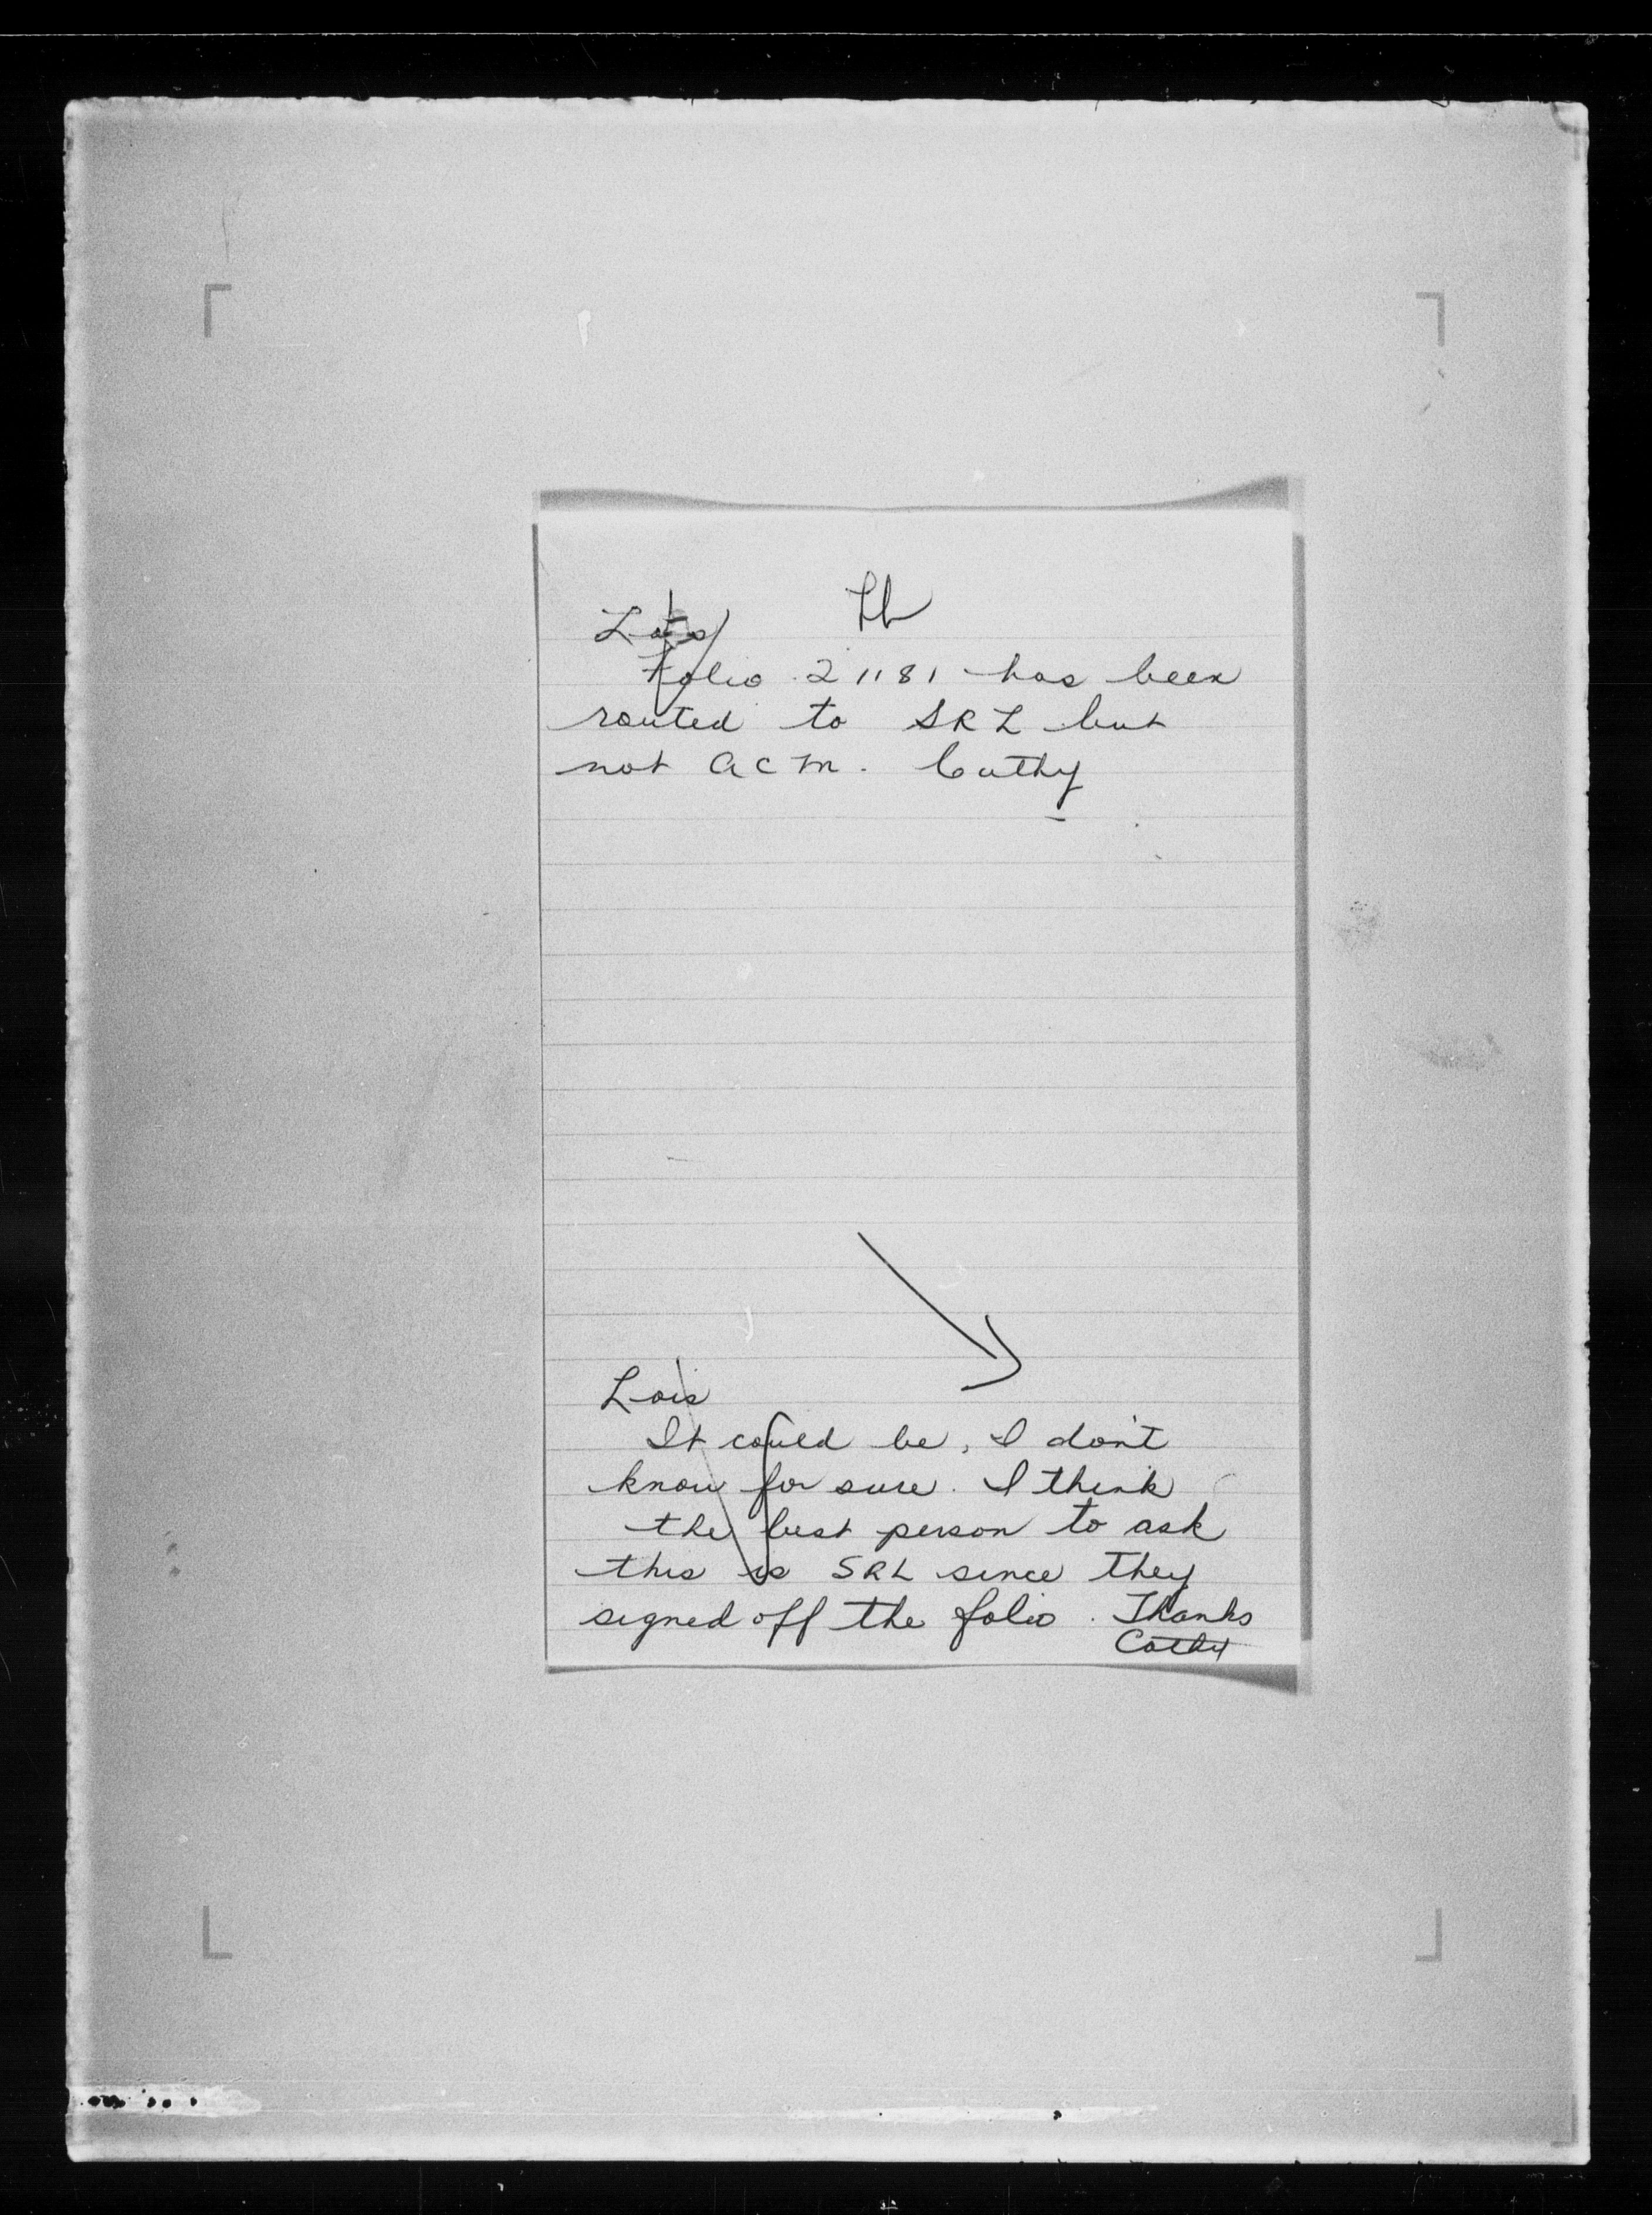 Lois
Folio 21181 has been
routed to SRL but
not ACM. Cathy
Lois
It could be, I don't
know for sure. I think
the best person to ask
this is SRL since they
signed off the folio. Thanks
Cathy